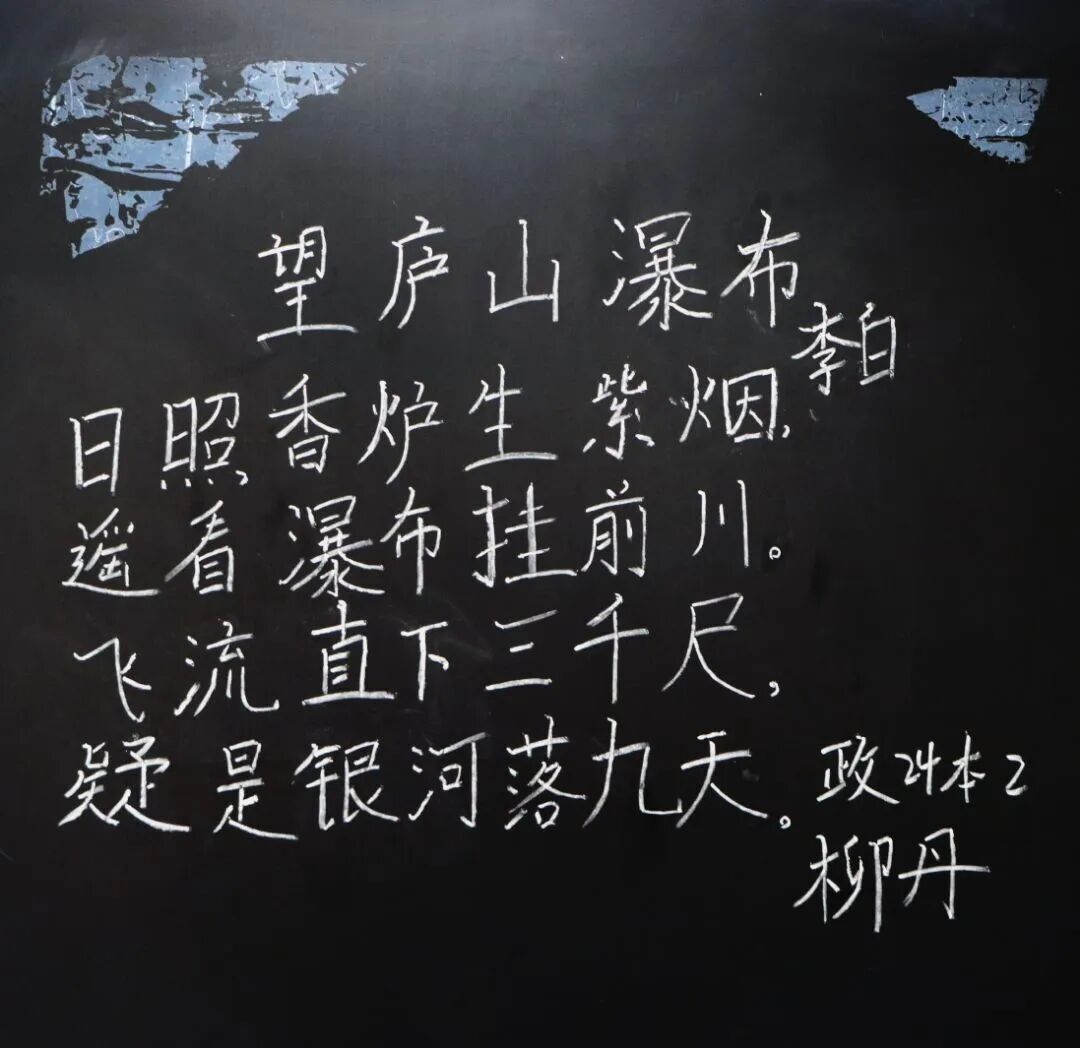 望庐山瀑布
李白
日照香炉生紫烟,
遥看瀑布挂前川。
飞流直下三千尺,
疑是银河落九天。
政24本2
柳丹